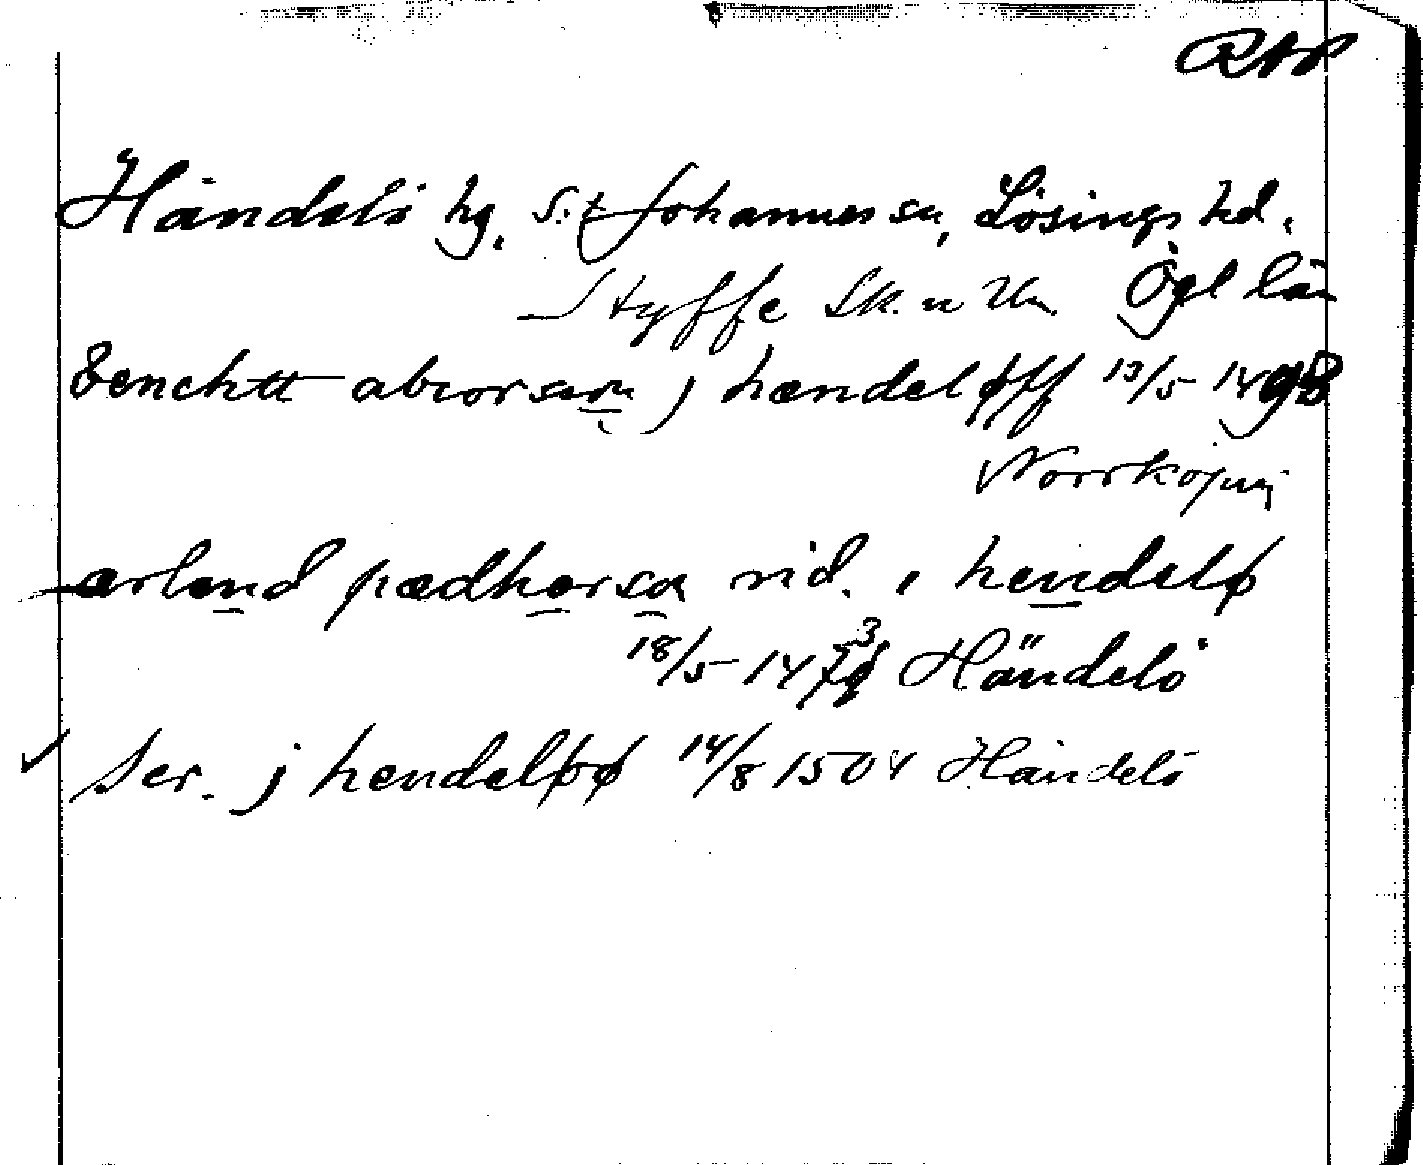 RAP
Händelö hg, S:t Johannes sn, Lösings hd.
Styffe Sk. u Un. Ögl län
benchtt abiorsson j hændeløff 13/5 1498
Norrköping
ærlend pædherson rid. i hendelø
18/5 1473 Händelö
ser. j hendeløø 14/8 1504 Händelö